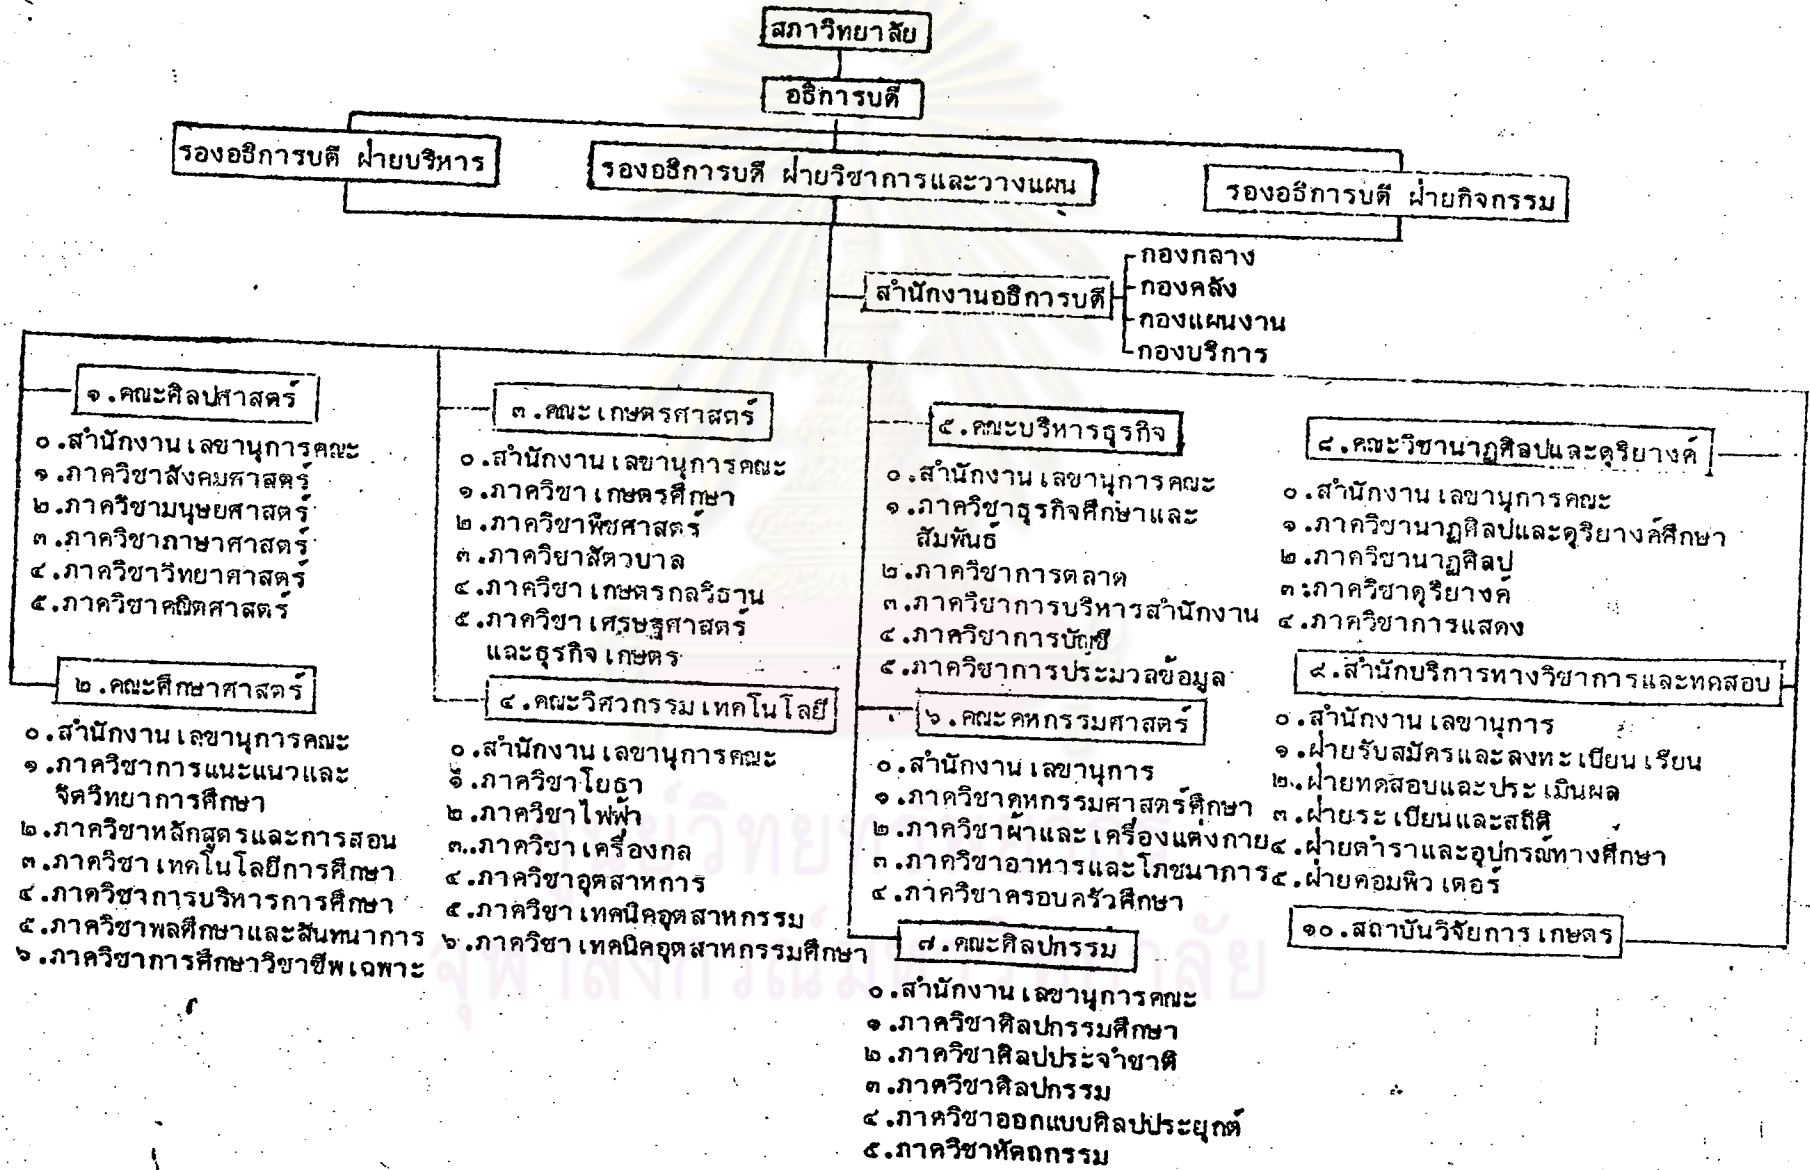 สภาวิทยาลัย
อธิการบดี
รองอธิการบดี ฝ่ายบริหาร
รองอธิการบดี ฝ่ายวิชาการและวางแผน
รองอธิการบดี ฝ่ายกิจกรรม
สำนักงานอธิการบดี
กองกลาง
กองคลัง
กองแผนงาน
กองบริการ
๑.คณะศิลปศาสตร์
๐.สำนักงานเลขานุการคณะ
๑.ภาควิชาสังคมศาสตร์
๒.ภาควิชามนุษยศาสตร์
๓.ภาควิชาภาษาศาสตร์
๔.ภาควิชาวิทยาศาสตร์
๕.ภาควิชาคณิตศาสตร์
๒.คณะศึกษาศาสตร์
๐.สำนักงานเลขานุการคณะ
๑.ภาควิชาการแนะแนวและ
จิตวิทยาการศึกษา
๒.ภาควิชาหลักสูตรและการสอน
๓.ภาควิชาเทคโนโลยีการศึกษา
๔.ภาควิชาการบริหารการศึกษา
๕.ภาควิชาพลศึกษาและสันทนาการ
๖.ภาควิชาการศึกษาวิชาชีพเฉพาะ
๓.คณะเกษตรศาสตร์
๐.สำนักงานเลขานุการคณะ
๑.ภาควิชาเกษตรศึกษา
๒.ภาควิชาพืชศาสตร์
๓.ภาควิชาสัตวบาล
๔.ภาควิชาเกษตรกลวิธาน
๕.ภาควิชาเศรษฐศาสตร์
และธุรกิจเกษตร
๔.คณะวิศวกรรมเทคโนโลยี
๐.สำนักงานเลขานุการคณะ
๑.ภาควิชาโยธา
๒.ภาควิชาไฟฟ้า
๓.ภาควิชาเครื่องกล
๔.ภาควิชาอุตสาหการ
๕.ภาควิชาเทคนิคอุตสาหกรรม
๖.ภาควิชาเทคนิคอุตสาหกรรมศึกษา
๕.คณะบริหารธุรกิจ
๐.สำนักงานเลขานุการคณะ
๑.ภาควิชาธุรกิจศึกษาและ
สัมพันธ์
๒.ภาควิชาการตลาด
๓.ภาควิชาการบริหารสำนักงาน
๔.ภาควิชาการบัญชี
๕.ภาควิชาการประมวลข้อมูล
๖.คณะคหกรรมศาสตร์
๐.สำนักงานเลขานุการ
๑.ภาควิชาคหกรรมศาสตร์ศึกษา
๒.ภาควิชาผ้าและเครื่องแต่งกาย
๓.ภาควิชาอาหารและโภชนาการ
๔.ภาควิชาครอบครัวศึกษา
๗.คณะศิลปกรรม
๐.สำนักงานเลขานุการคณะ
๑.ภาควิชาศิลปกรรมศึกษา
๒.ภาควิชาศิลปประจำชาติ
๓.ภาควิชาศิลปกรรม
๔.ภาควิชาออกแบบศิลปประยุกต์
๕.ภาควิชาหัตถกรรม
๘.คณะวิชานาฏศิลปและดุริยางค์
๐.สำนักงานเลขานุการคณะ
๑.ภาควิชานาฏศิลปและดุริยางค์ศึกษา
๒.ภาควิชานาฏศิลป
๓.ภาควิชาดุริยางค์
๔.ภาควิชาการแสดง
๙.สำนักบริการทางวิชาการและทดสอบ
๐.สำนักงานเลขานุการ
๑.ฝ่ายรับสมัครและลงทะเบียนเรียน
๒.ฝ่ายทดสอบและประเมินผล
๓.ฝ่ายระเบียนและสถิติ
๔.ฝ่ายตำราและอุปกรณ์ทางศึกษา
๕.ฝ่ายคอมพิวเตอร์
๑๐.สถาบันวิจัยการเกษตร
ศูนย์วิทยทรัพยากร
จุฬาลงกรณ์มหาวิทยาลัย